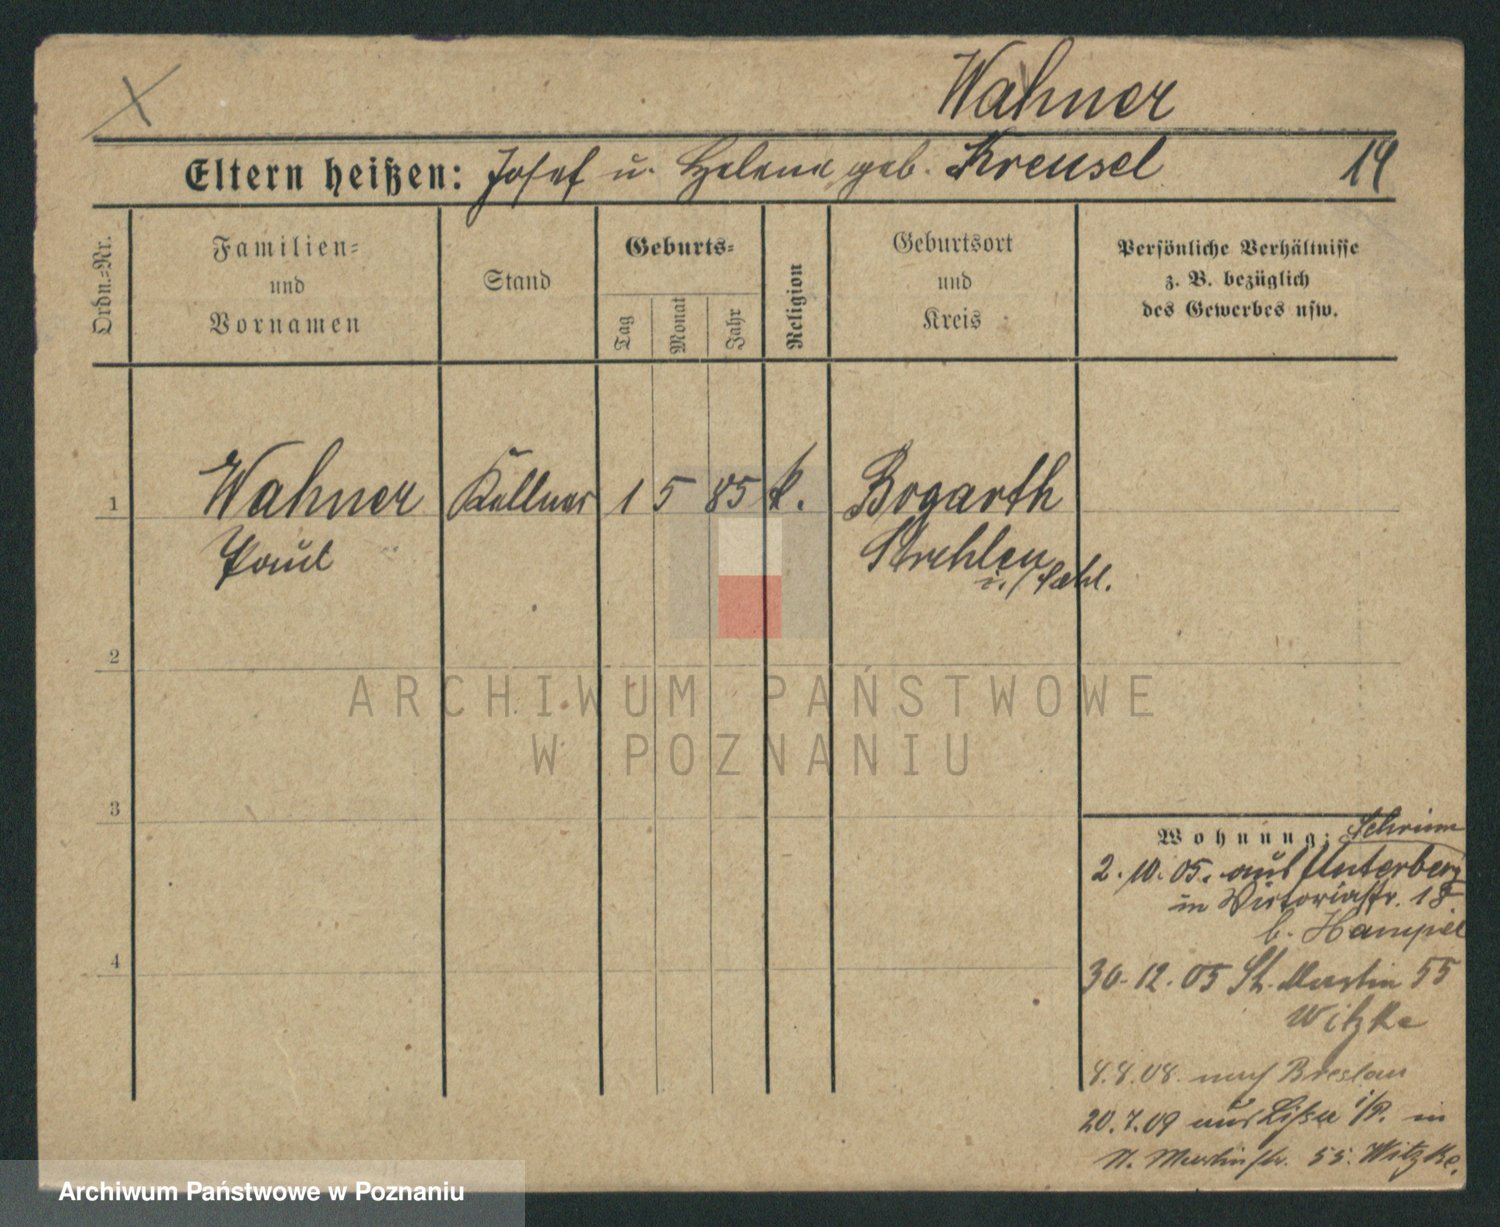 Wahner
Eltern heißen: Josef u. Helena geb. Kreusel 14
Ordn.=Nr.
Familien=
und
Vornamen
Stand
Geburts=
Tag
Monat
Jahr
Religion
Geburtsort
und
Kreis
Persönliche Verhältnisse
z. B. bezüglich
des Gewerbes usw.
1 Wahner Kellner 1 5 85 k. Bogarth
Paul Strehlen
i./Schl.
2
ARCHIWUM PAŃSTWOWE
W POZNANIU
3
Wohnung: Schrimm
2.10.05. aus Unterberg
in Victoriastr. 18
b. Hampel
4
30.12.05 St. Martin 55
Witzke
4.8.08. nach Breslau
20.7.09 aus Lissa i/P. in
St. Martinstr. 55. Witzke.
Archiwum Państwowe w Poznaniu